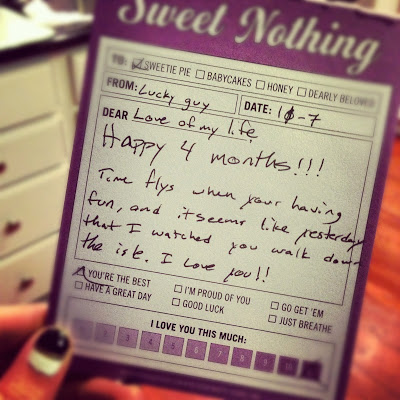 Sweet Nothing
TO: ☑ SWEETIE PIE ☐ BABYCAKES ☐ HONEY ☐ DEARLY BELOVED
FROM: Lucky guy DATE: 10-7
DEAR Love of my life
Happy 4 months!!!
Time flys when your having
fun, and it seems like yesterday
that I watched you walk down
the isle. I love you!!
☑ YOU'RE THE BEST ☐ I'M PROUD OF YOU ☐ GO GET 'EM
☐ HAVE A GREAT DAY ☐ GOOD LUCK ☐ JUST BREATHE
I LOVE YOU THIS MUCH:
3 4 5 6 7 8 9